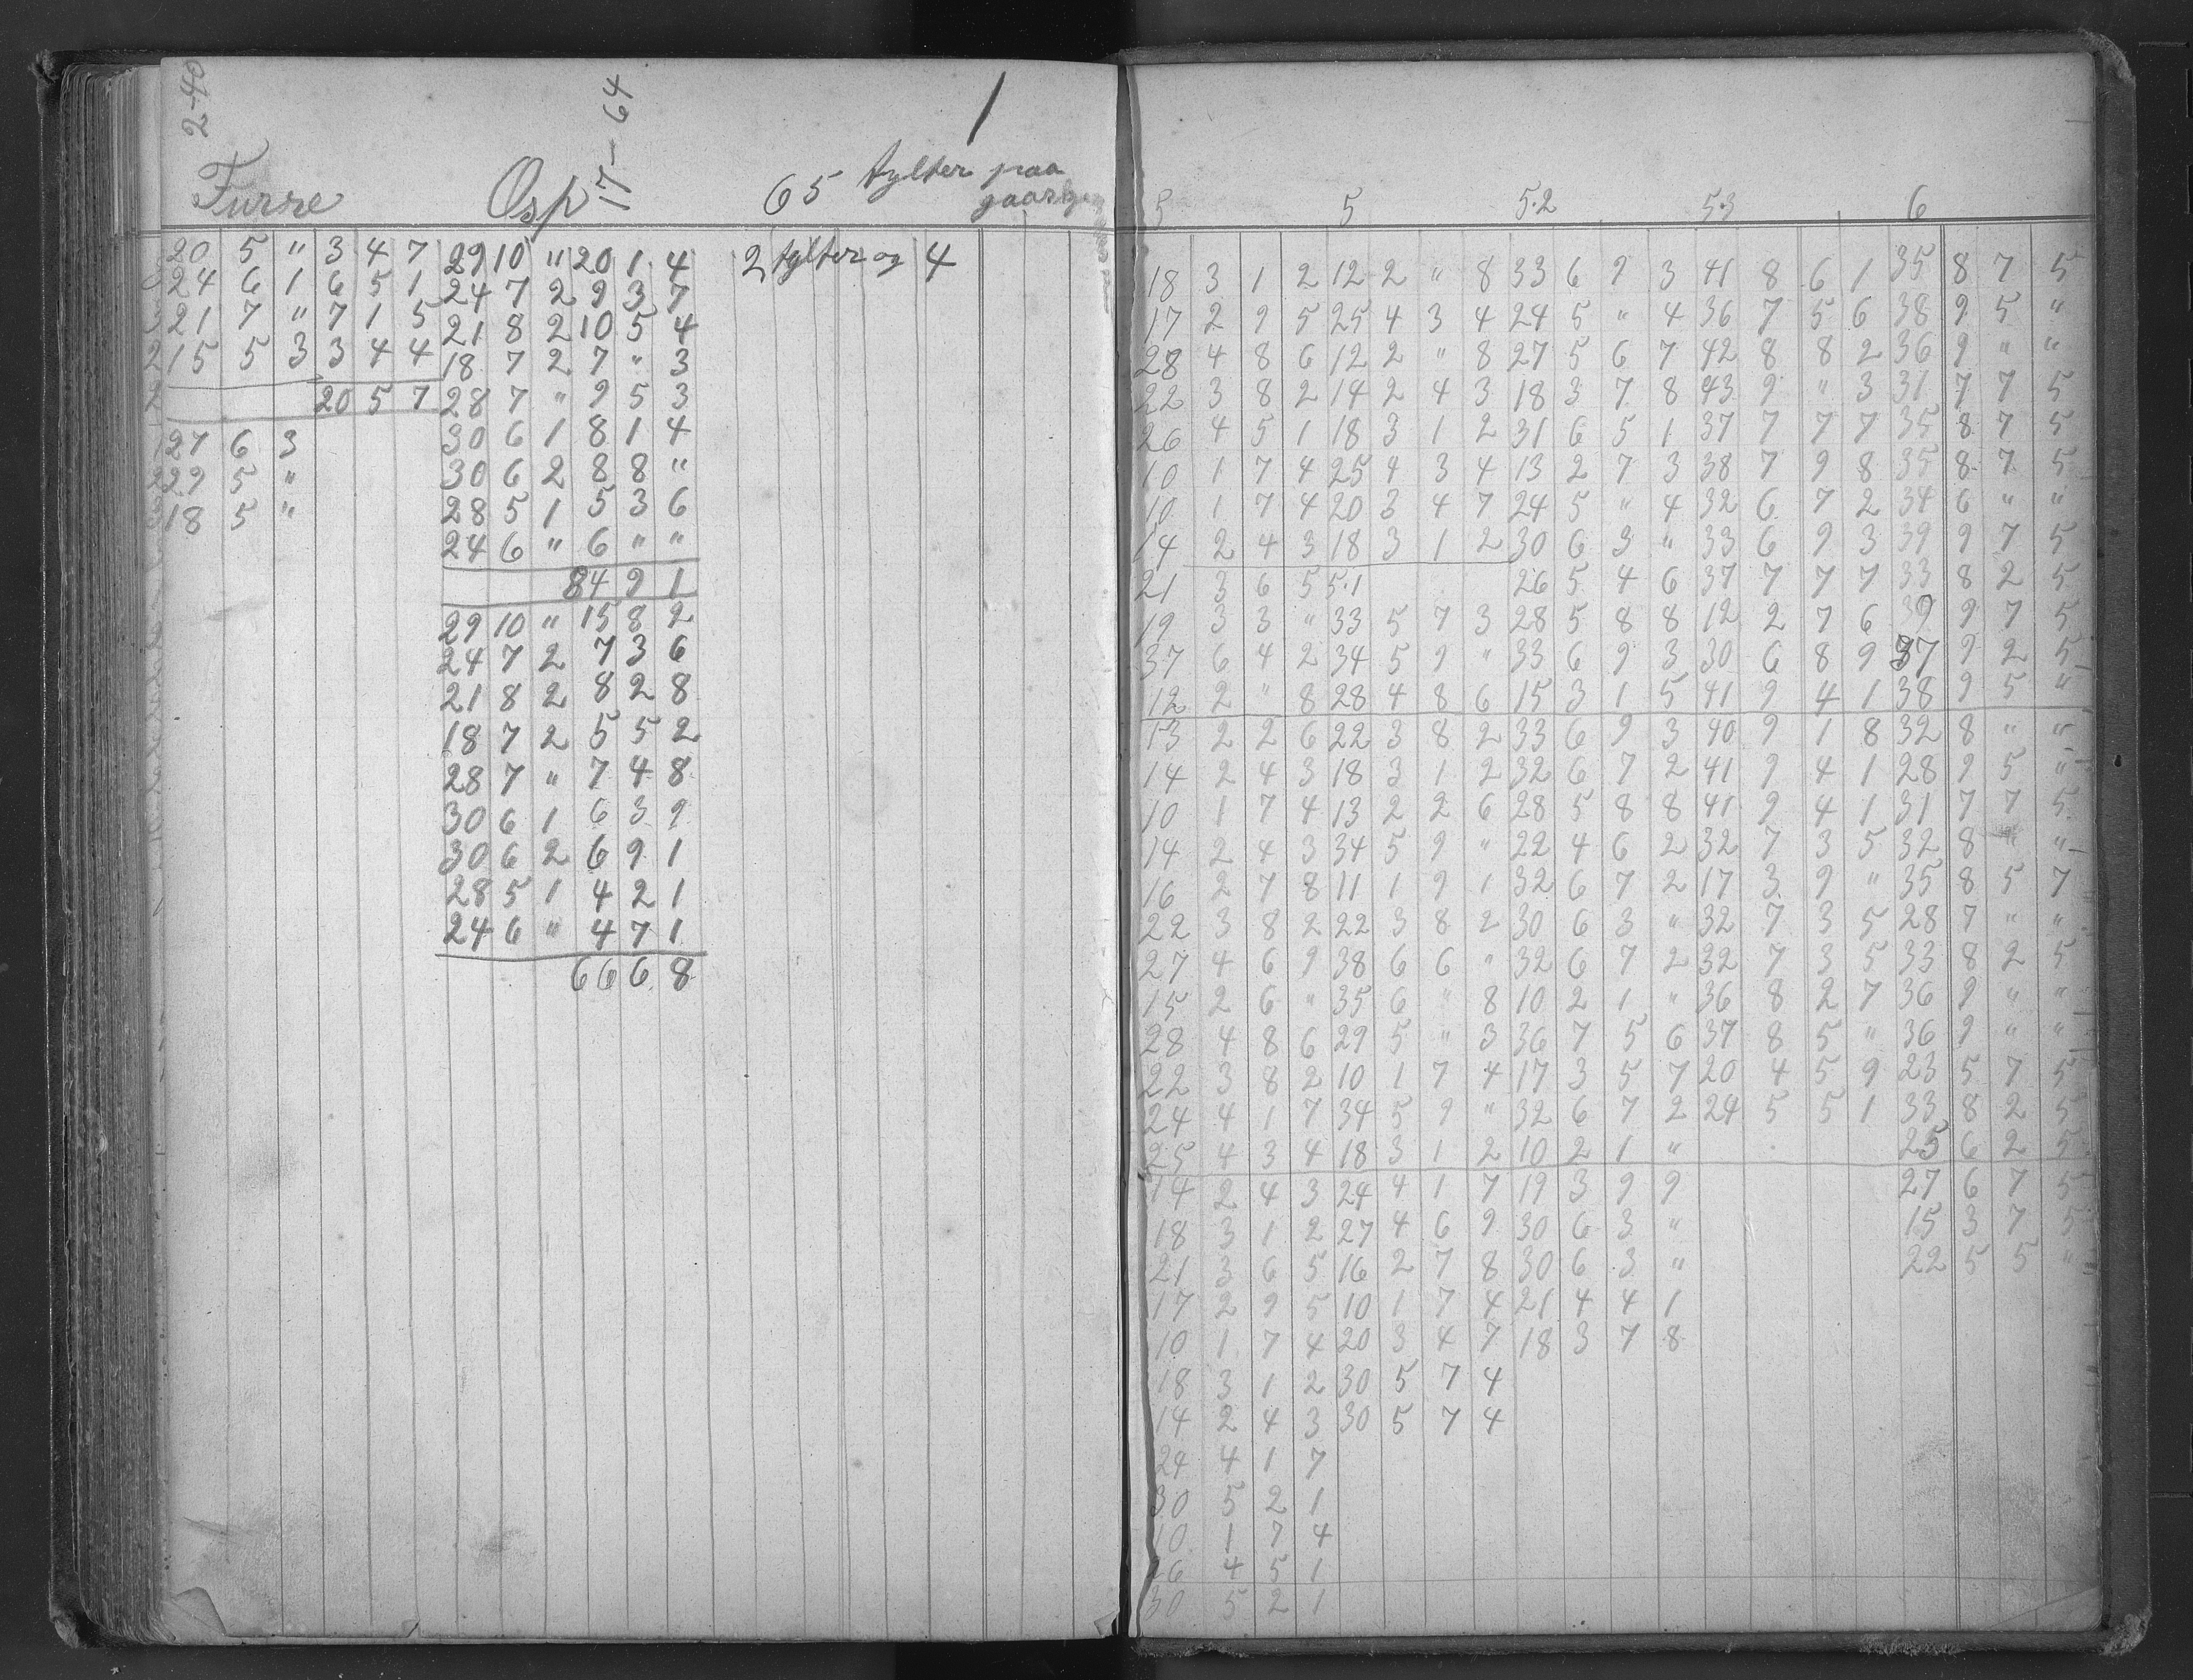 2-40
17-64
1
Furre Osp 65 tylter paa
20 5 " 3 4 7 29 10 " 20 1 4 2 tylter og 4
24 6 1 6 5 1 24 7 2 9 3 7
21 7 " 7 1 5 21 8 2 10 5 4
15 5 3 3 4 4 18 7 2 7 " 3
20 5 7 28 7 " 9 5 3
27 6 3 30 6 1 8 1 4
29 5 " 30 6 2 8 8 "
18 5 " 28 5 1 5 3 6
24 6 " 6 " "
84 9 1
29 10 " 15 8 2
24 7 2 7 3 6
21 8 2 8 2 8
18 7 2 5 5 2
28 7 " 7 4 8
30 6 1 6 3 9
30 6 2 6 9 1
28 5 1 4 2 1
24 6 " 4 7 1
66 6 8
5 5 5.2 5.3 6
18 3 1 2 12 2 " 8 33 6 9 3 41 8 6 1 35 8 7 5
17 2 9 5 25 4 3 4 24 5 " 4 36 7 5 6 38 9 5 "
28 4 8 6 12 2 " 8 27 5 6 7 42 8 8 2 36 9 " "
22 3 8 2 14 2 4 3 18 3 7 8 43 9 " 3 31 7 7 5
26 4 5 1 18 3 1 2 31 6 5 1 37 7 7 7 35 8 7 5
10 1 7 4 25 4 3 4 13 2 7 3 38 7 9 8 35 8 7 5
10 1 7 4 20 3 4 7 24 5 " 4 32 6 7 2 34 6 " "
14 2 4 3 18 3 1 2 30 6 3 " 33 6 9 3 39 9 7 5
21 3 6 5 5.1 26 5 4 6 37 7 7 7 33 8 2 5
19 3 3 " 33 5 7 3 28 5 8 8 12 2 7 6 39 9 7 5
37 6 4 2 34 5 9 " 33 6 9 3 30 6 8 9 37 9 2 5
12 2 " 8 28 4 8 6 15 3 1 5 41 9 4 1 38 9 5 "
13 2 2 6 22 3 8 2 33 6 9 3 40 9 1 8 32 8 " "
14 2 4 3 18 3 1 2 32 6 7 2 41 9 4 1 28 9 5 "
10 1 7 4 13 2 2 6 28 5 8 8 41 9 4 1 31 7 7 5
14 2 4 3 34 5 9 " 22 4 6 2 32 7 3 5 32 8 " "
16 2 7 8 11 1 9 1 32 6 7 2 17 3 9 " 35 8 5 7
22 3 8 2 22 3 8 2 30 6 3 " 32 7 3 5 28 7 " "
27 4 6 9 38 6 6 " 32 6 7 2 32 7 3 5 33 8 2 5
15 2 6 " 35 6 " 8 10 2 1 " 36 8 2 7 36 9 " "
28 4 8 6 29 5 " 3 36 7 5 6 37 8 5 " 36 9 " "
22 3 8 2 10 1 7 4 17 3 5 7 20 4 5 9 23 5 7 5
24 4 1 7 34 5 9 " 32 6 7 2 24 5 5 1 33 8 2 5
25 4 3 4 18 3 1 2 10 2 1 " 25 6 2 5
14 2 4 3 24 4 1 7 19 3 9 9 27 6 7 5
18 3 1 2 27 4 6 9 30 6 3 " 15 3 7 5
21 3 6 5 16 2 7 8 30 6 3 " 22 5 5 "
17 2 9 5 10 1 7 4 21 4 4 1
10 1 7 4 20 3 4 7 18 3 7 8
18 3 1 2 30 5 7 4
14 2 4 3 30 5 7 4
24 4 1 7
30 5 2 1
10 1 7 4
26 4 5 1
30 5 2 1